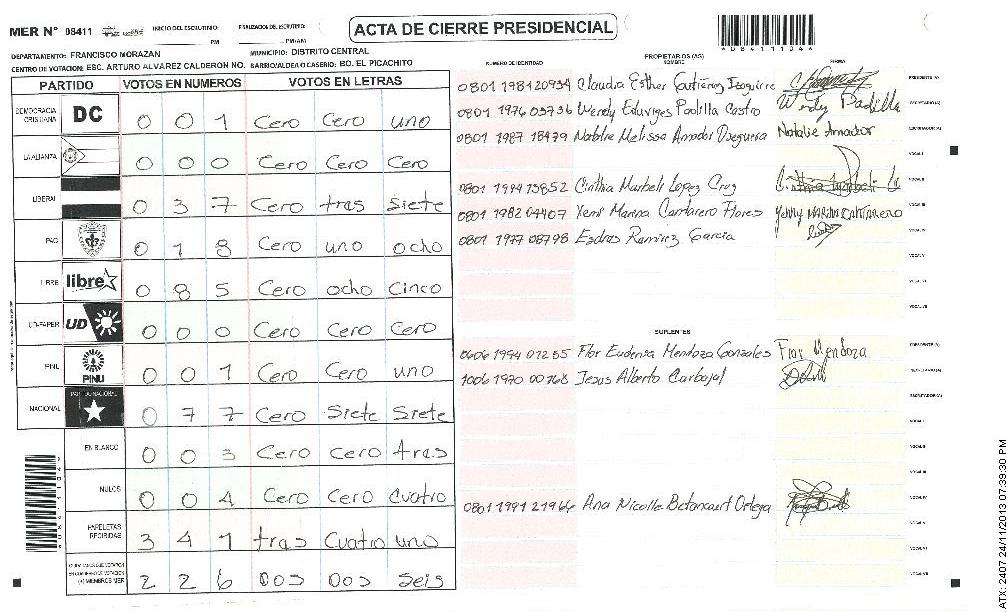 MER N° 08411 INICIO DEL ESCRUTINIO: PM FINALIZACION DEL ESCRUTINIO: PM/AM
ACTA DE CIERRE PRESIDENCIAL
DEPARTAMENTO: FRANCISCO MORAZAN MUNICIPIO: DISTRITO CENTRAL
CENTRO DE VOTACION: ESC. ARTURO ALVAREZ CALDERON NO. BARRIO/ALDEA O CASERIO: BO. EL PICACHITO
PARTIDO VOTOS EN NUMEROS VOTOS EN LETRAS
DEMOCRACIA CRISTIANA DC 0 0 1 Cero Cero uno
LA ALIANZA 0 0 0 Cero Cero Cero
LIBERAL 0 3 7 Cero tras Siete
PAC 0 1 8 Cero uno ocho
LIBRE libre 0 8 5 Cero ocho Cinco
UD-FAPER UD 0 0 0 Cero Cero Cero
PINU PINU 0 0 1 Cero Cero uno
NACIONAL PARTIDO NACIONAL 0 7 7 Cero Siete Siete
EN BLANCO 0 0 3 Cero Cero tras
NULOS 0 0 4 Cero Cero Cuatro
PAPELETAS RECIBIDAS 3 4 1 tras Cuatro uno
2 2 6 DOS DOS Seis
NUMERO DE IDENTIDAD PROPIETARIOS (AS) NOMBRE FIRMA
0801 1981 20934 Claudia Esther Gutiérrez Izaguirre PRESIDENTE (A)
0801 1976 03736 Wendy Eduviges Padilla Castro Wendy Padilla SECRETARIO (A)
0801 1987 18479 Natalie Melissa Amador Oseguera Natalie Amador ESCRUTADOR (A)
VOCAL I
0801 1994 13852 Cinthia Marbeli Lopez Cruz VOCAL II
0801 1982 04407 Yemi Marina Cantarero Flores Yenny MARINA CANTARERO VOCAL III
0801 1977 08798 Esdras Ramirez Garcia VOCAL IV
VOCAL V
VOCAL VI
VOCAL VII
VOCAL VIII
SUPLENTES
0606 1994 01255 Flor Eudenia Mendoza Gonzales Flor Mendoza PRESIDENTE (A)
1006 1970 00768 Jesus Alberto Carbajal SECRETARIO (A)
ESCRUTADOR (A)
VOCAL I
VOCAL II
VOCAL III
0801 1991 21966 Ana Nicolle Betancourt Ortega VOCAL IV
VOCAL V
VOCAL VI
VOCAL VII
VOCAL VIII
ATX: 2407 24/11/2013 07:39:30 PM